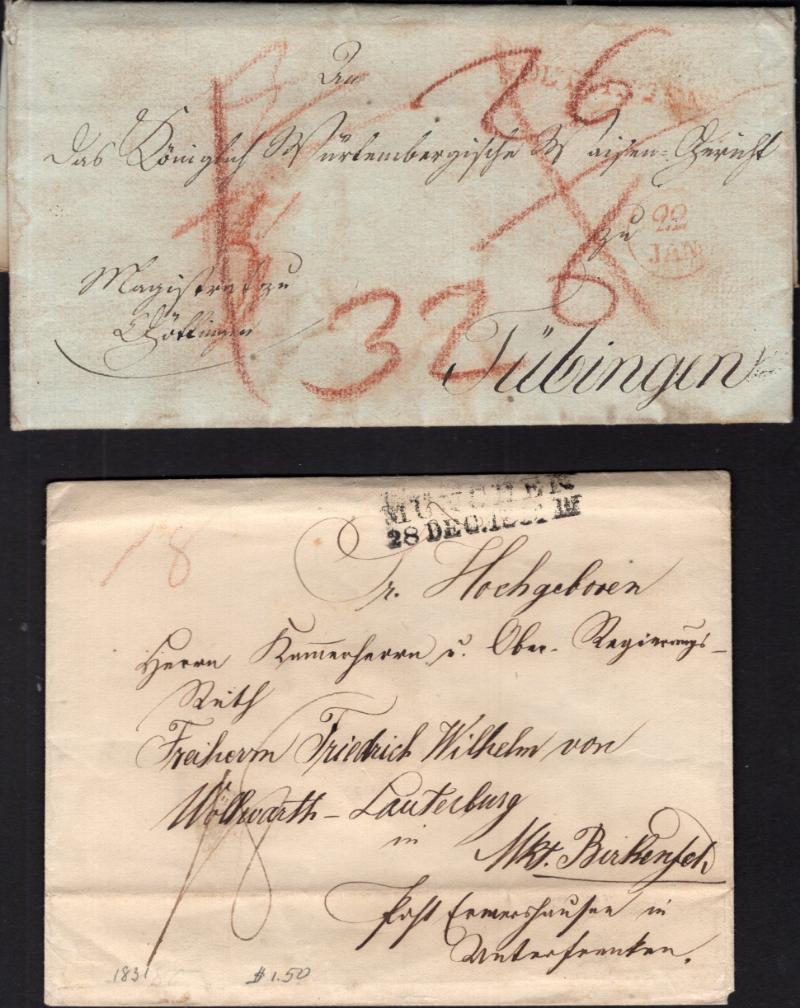 An
26
das Königlich Würtembergische Waisen-Gericht
zu
22
JAN
Magistrat zu
Göttingen
32
6
Tübingen
MÜNCHEN
28 DEC. III
18
Sr. Hochgeboren
Herrn Kammerherrn u. Ober-Regierungs-
Rath
Freiherrn Friedrich Wilhelm von
Wöllwarth-Lauterburg
in
Mkt. Birkenfeld
Post Ermershausen in
Unterfranken.
18
1831
$1.50